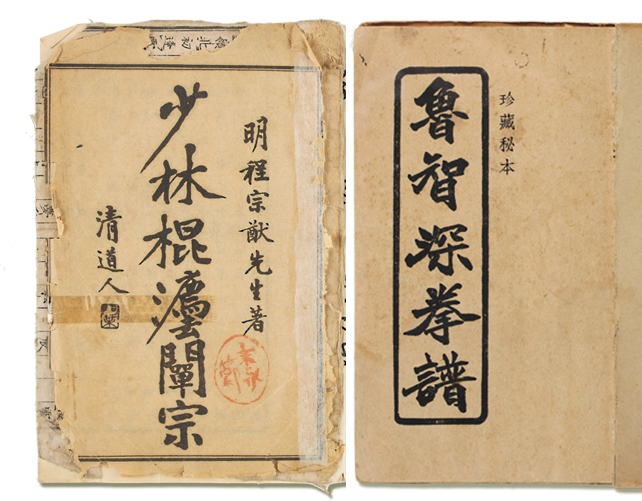 明程宗猷先生著
少林棍灋闡宗
清道人
珍藏秘本
魯智深拳譜